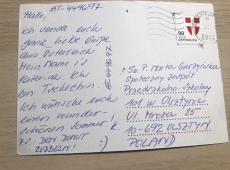 AT-449697
Hallo,
ich sende euch
ganz liebe Grüße
aus Österreich
Mein Name is
Katerina. Ich
bin Tschechin.
Ich wünsche euch
einen wunder-
schönen Sommer! K.
:)
AT-449697
90
Sz. P. Marta
Społeczny Zespół
Przedszkolno-Szkolny
w Olsztynie
Ul. Mroza 25
10-692 OLSZTYN
POLAND